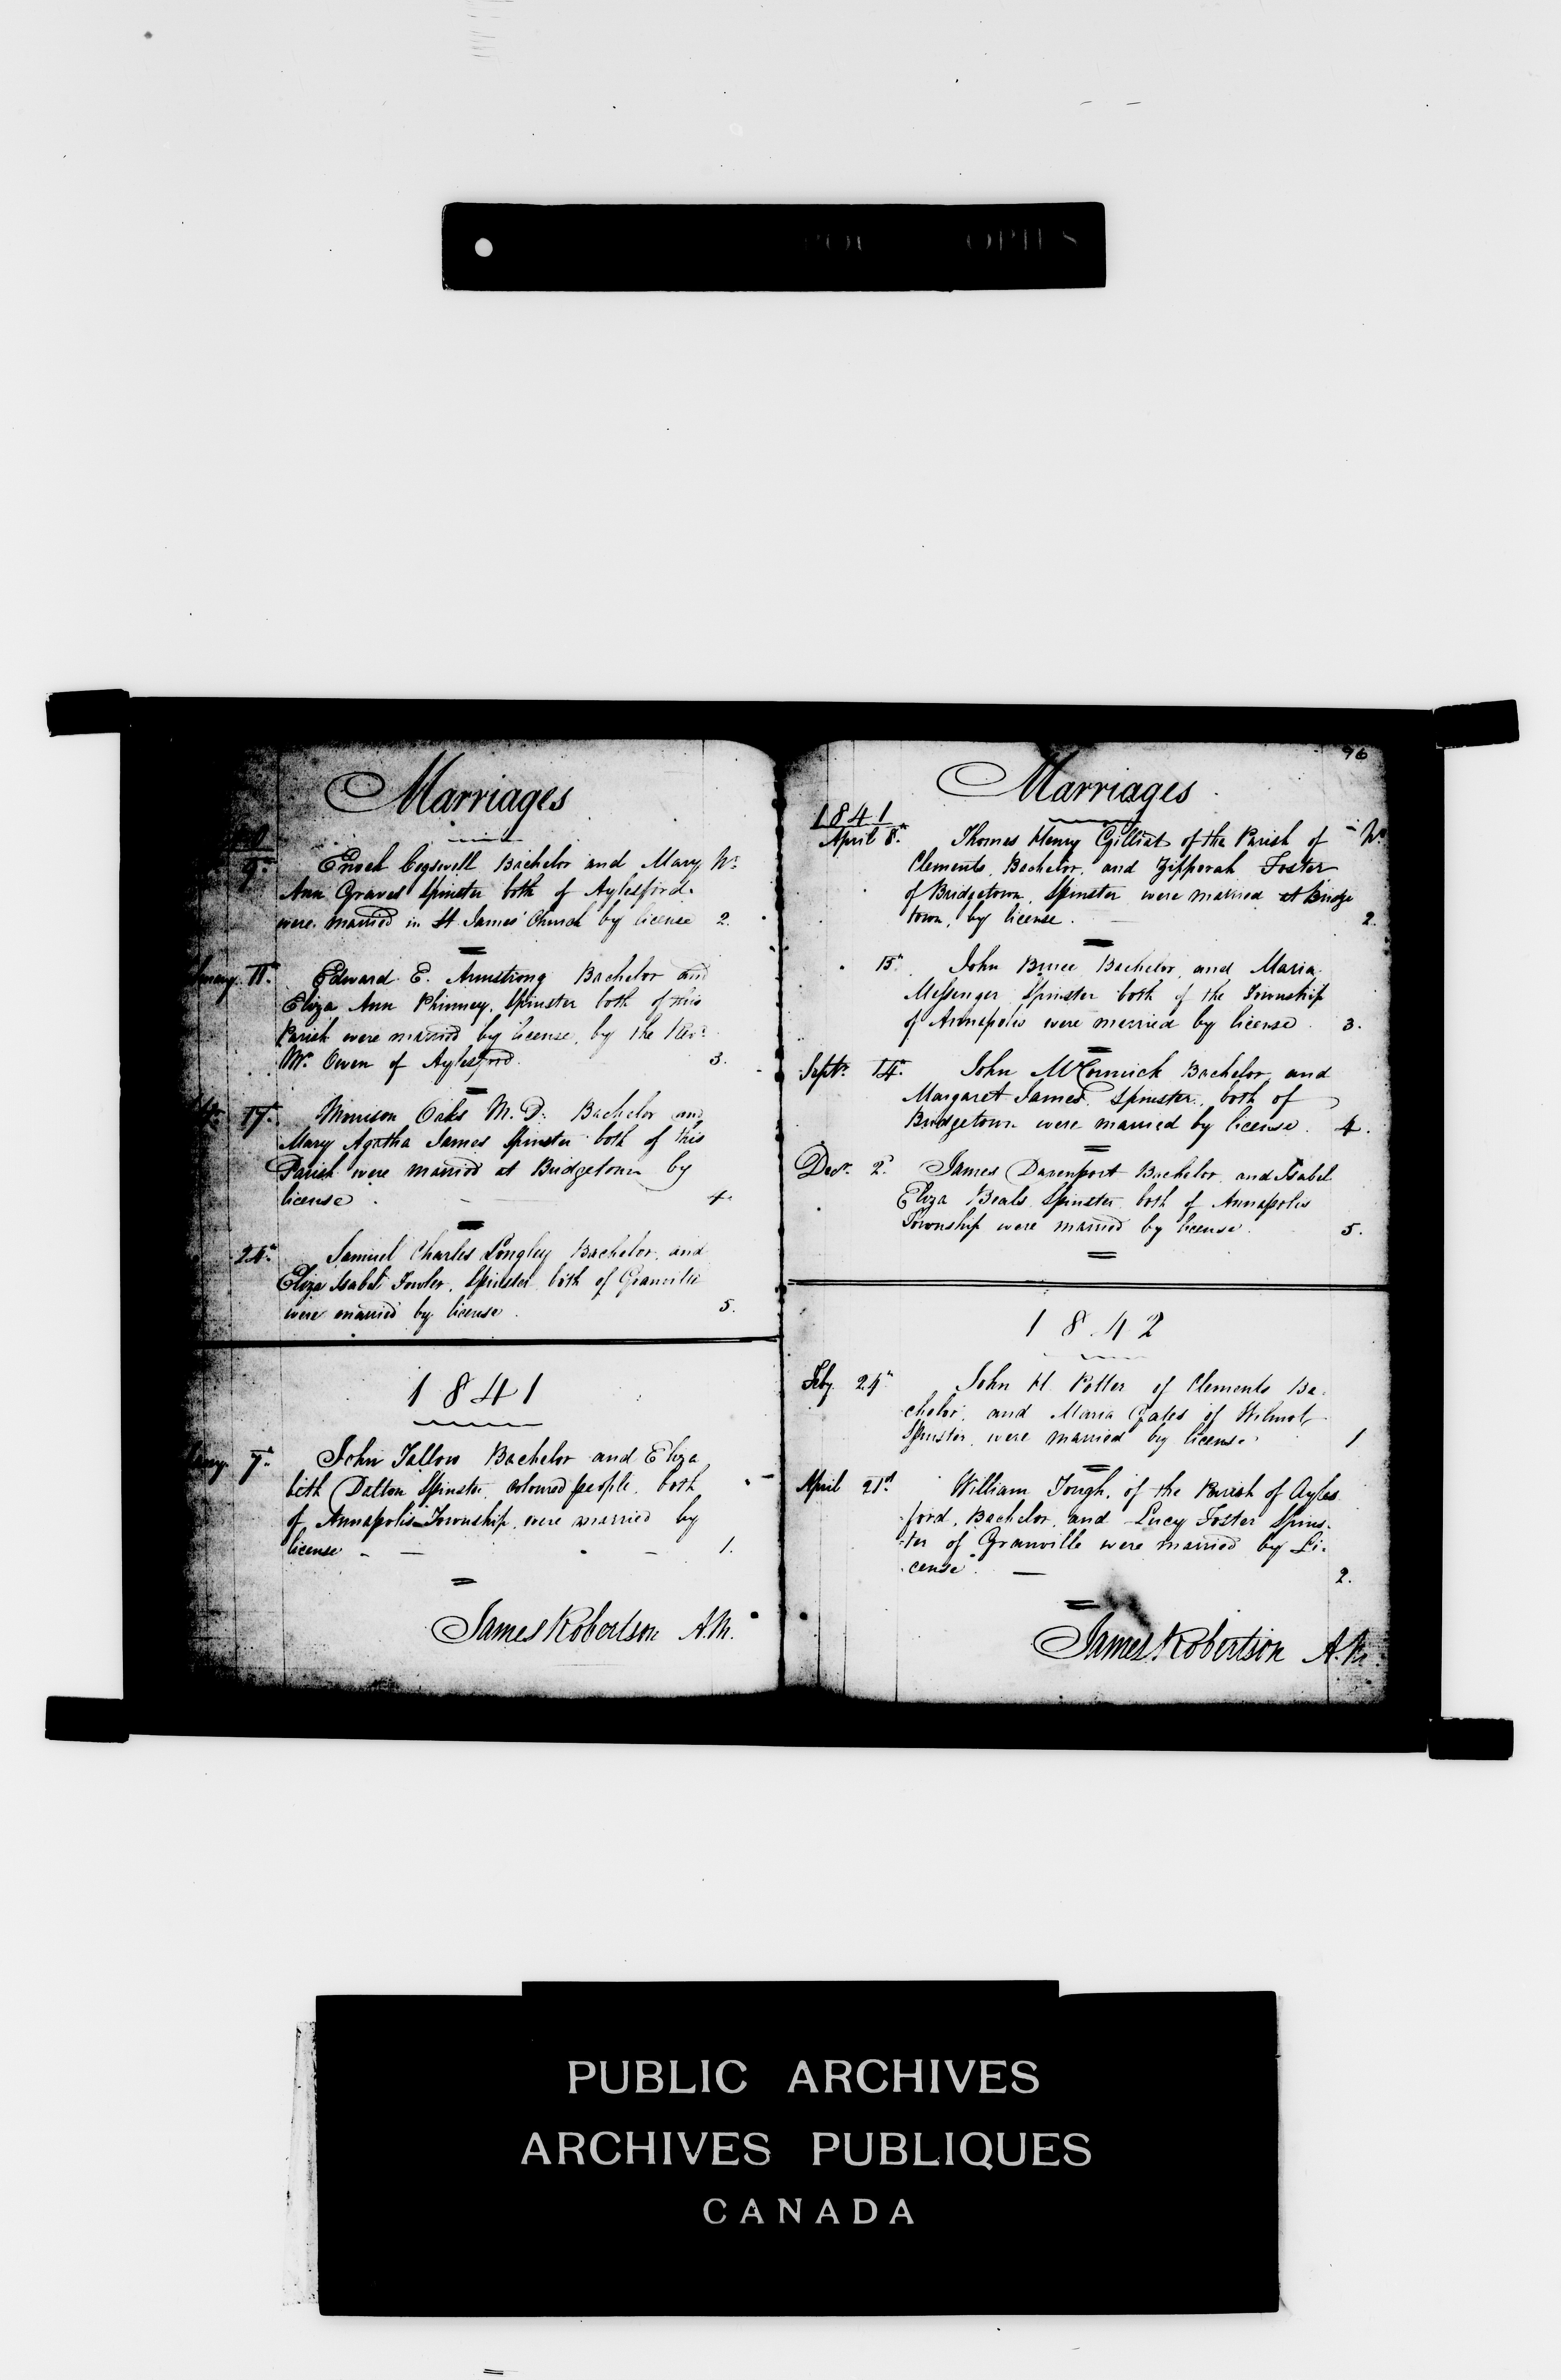 Marriages
9th Enoch Cogswell Bachelor and Mary No
Ann Graves Spinster both of Aylesford
were married in St James' Church by license 2.
11th Edward E. Armstrong Bachelor and
Eliza Ann Phinney, Spinster both of this
Parish were married by license, by the Revd
Mr. Owen of Aylesford. 3.
17th Morrison Oaks M.D. Bachelor and
Mary Agatha James Spinster both of this
Parish were married at Bridgetown by
license. 4.
24th Samuel Charles Longley Bachelor, and
Eliza Isabel Fowler, Spinster both of Granville
were married by license. 5.
1841
7th John Fallow Bachelor and Eliza
beth Dalton Spinster, coloured people, both
of Annapolis Township, were married by
license - - - 1.
James Robertson A.M.
96
Marriages
1841
April 8th Thomas Henry Gilliat of the Parish of No
Clements, Bachelor, and Zipporah Foster
of Bridgetown, Spinster were married at Bridge
town, by license. 2.
15th John Bruce Bachelor, and Maria
Messenger Spinster both of the Township
of Annapolis were married by license. 3.
Septr 14th John McCormick Bachelor, and
Margaret James, Spinster, both of
Bridgetown were married by license. 4.
Decr 2d James Davenport Bachelor, and Isabel
Eliza Beals Spinster both of Annapolis
Township were married by license. 5.
1842
Feby 24th John H. Potter of Clements Ba-
chelor, and Maria Gates of Wilmot
Spinster, were married by license. 1
April 21st William Tough, of the Parish of Ayles
ford, Bachelor, and Lucy Foster Spins-
ter of Granville were married by Li-
cense. 2.
James Robertson A.M.
PUBLIC ARCHIVES
ARCHIVES PUBLIQUES
CANADA